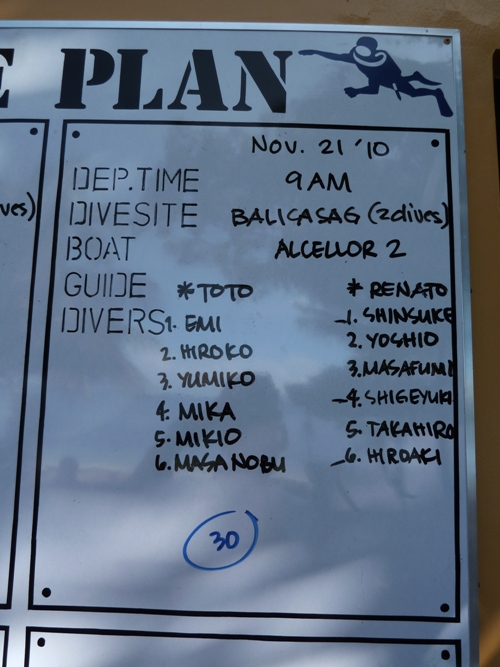 E PLAN
ves)
NOV. 21 '10
DEP.TIME 9AM
DIVESITE BALICASAG (2dives)
BOAT ALCELLOR 2
GUIDE *TOTO * RENATO
DIVERS 1. EMI 1. SHINSUKE
2. HIROKO 2. YOSHIO
3. YUMIKO 3. MASAFUMI
4. MIKA 4. SHIGEYUKI
5. MIKIO 5. TAKAHIRO
6. MASANOBU 6. HIROAKI
30